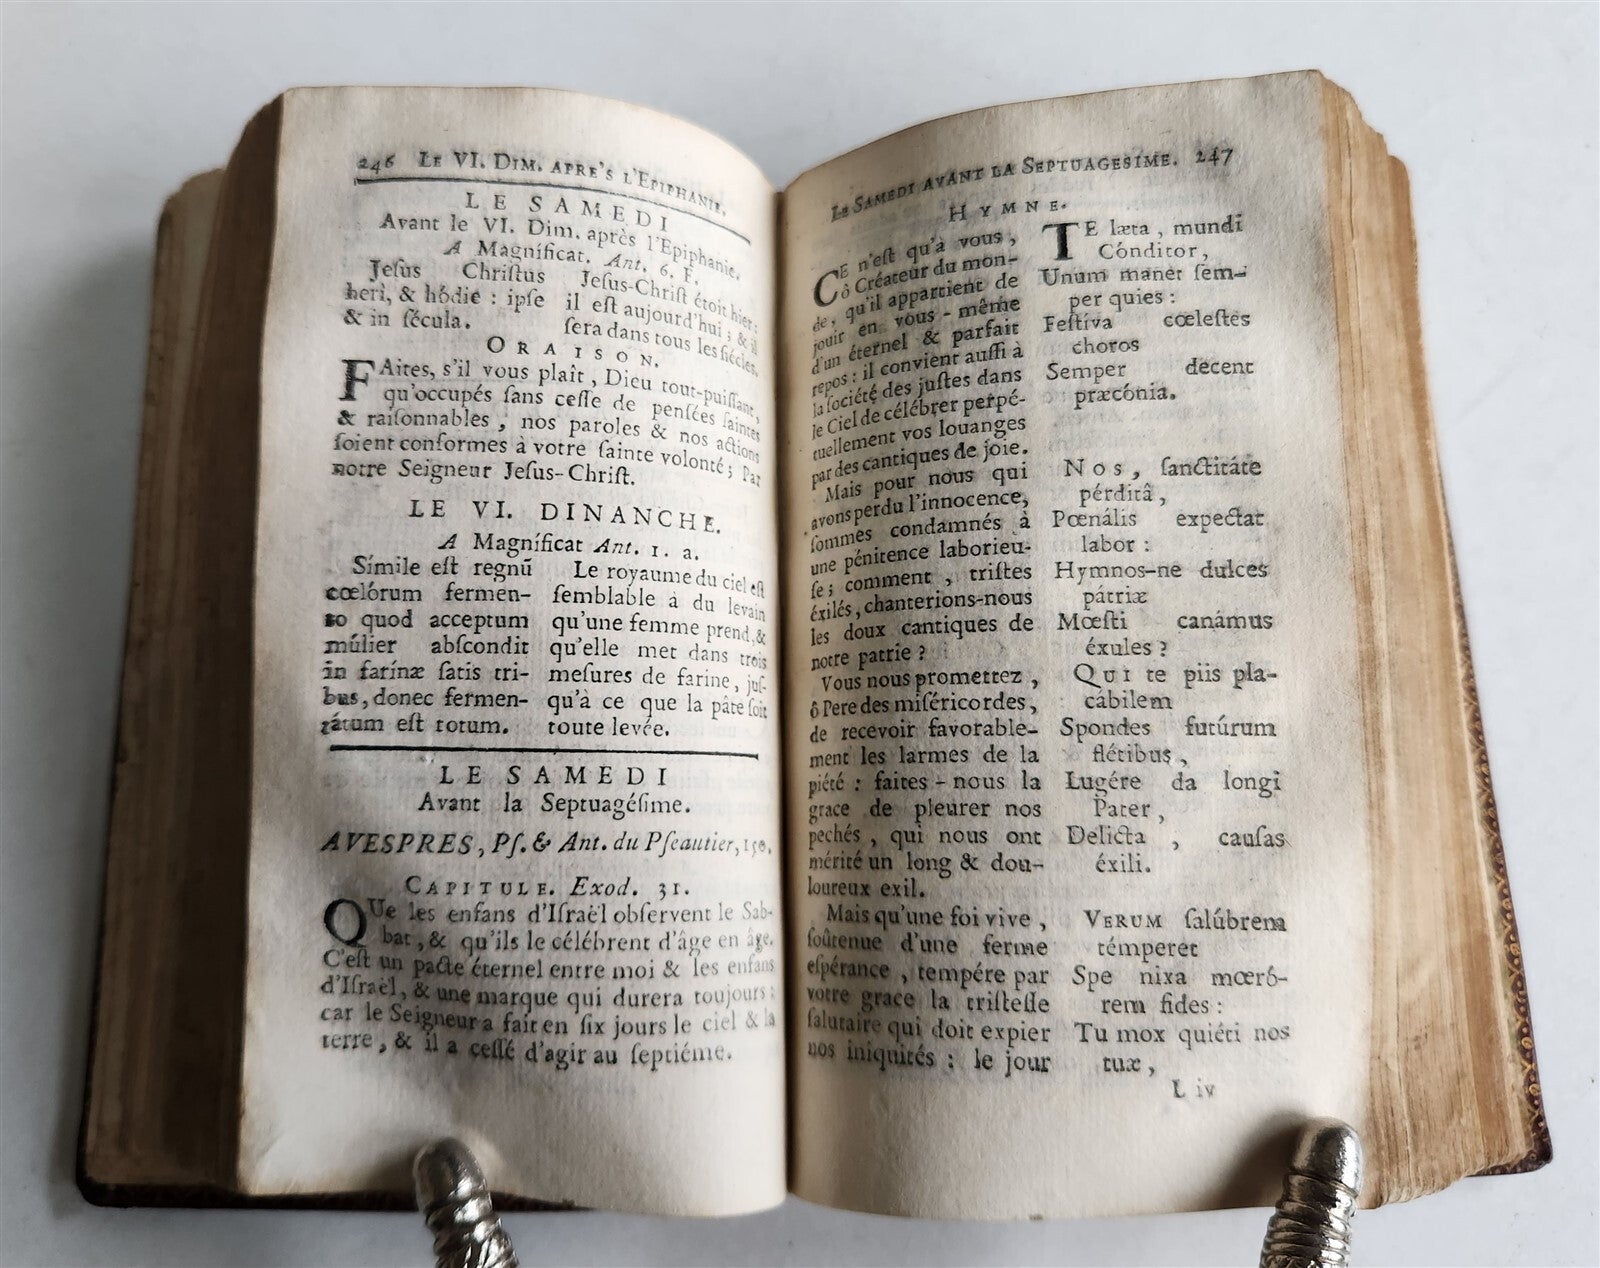 246 LE VI. DIM. APRE'S L'EPIPHANIE.
LE SAMEDI
Avant le VI. Dim. après l'Epiphanie.
A Magníficat. Ant. 6. F.
Jeſus Chriſtus
heri, & hódie : ipſe
& in ſécula.
Jeſus-Chriſt étoit hier ;
il eſt aujourd'hui ; & il
ſera dans tous les ſiécles.
ORAISON.
FAites, s'il vous plaît, Dieu tout-puiſſant,
qu'occupés ſans ceſſe de penſées ſaintes
& raiſonnables, nos paroles & nos actions
ſoient conformes à votre ſainte volonté ; Par
notre Seigneur Jeſus-Chriſt.
LE VI. DINANCHE.
A Magníficat Ant. 1. a.
Símile eſt regnū
cœlórum fermen-
to quod acceptum
múlier abſcondit
in farínæ ſatis tri-
bus, donec fermen-
tátum eſt totum.
Le royaume du ciel eſt
ſemblable à du levain
qu'une femme prend, &
qu'elle met dans trois
meſures de farine, juſ-
qu'à ce que la pâte ſoit
toute levée.
LE SAMEDI
Avant la Septuagéſime.
A VESPRES, Pſ. & Ant. du Pſeautier, 150.
CAPITULE. Exod. 31.
QUe les enfans d'Iſraël obſervent le Sab-
bat, & qu'ils le célébrent d'âge en âge.
C'eſt un pacte éternel entre moi & les enfans
d'Iſraël, & une marque qui durera toujours :
car le Seigneur a fait en ſix jours le ciel & la
terre, & il a ceſſé d'agir au ſeptiéme.
LE SAMEDI AVANT LA SEPTUAGESIME. 247
HYMNE.
CE n'eſt qu'à vous,
ô Créateur du mon-
de, qu'il appartient de
jouir en vous-même
d'un éternel & parfait
repos : il convient auſſi à
la ſociété des juſtes dans
le Ciel de célébrer perpé-
tuellement vos louanges
par des cantiques de joie.
Mais pour nous qui
avons perdu l'innocence,
ſommes condamnés à
une pénitence laborieu-
ſe ; comment, triſtes
éxilés, chanterions-nous
les doux cantiques de
notre patrie ?
Vous nous promettez,
ô Pere des miſéricordes,
de recevoir favorable-
ment les larmes de la
piété : faites-nous la
grace de pleurer nos
pechés, qui nous ont
mérité un long & dou-
loureux exil.
Mais qu'une foi vive,
ſoûtenue d'une ferme
eſpérance, tempére par
votre grace la triſteſſe
ſalutaire qui doit expier
nos iniquités : le jour
TE læta, mundi
Cónditor,
Unum manet ſem-
per quies :
Feſtíva cœleſtes
choros
Semper decent
præcónia.
NOS, ſanctitáte
pérditâ,
Pœnális expectat
labor :
Hymnos-ne dulces
pátriæ
Mœſti canámus
éxules ?
QUI te piis pla-
cábilem
Spondes futúrum
flétibus,
Lugére da longi
Pater,
Delícta, cauſas
éxili.
VERUM ſalúbrem
témperet
Spe nixa mœró-
rem fides :
Tu mox quiéti nos
tuæ,
L iv